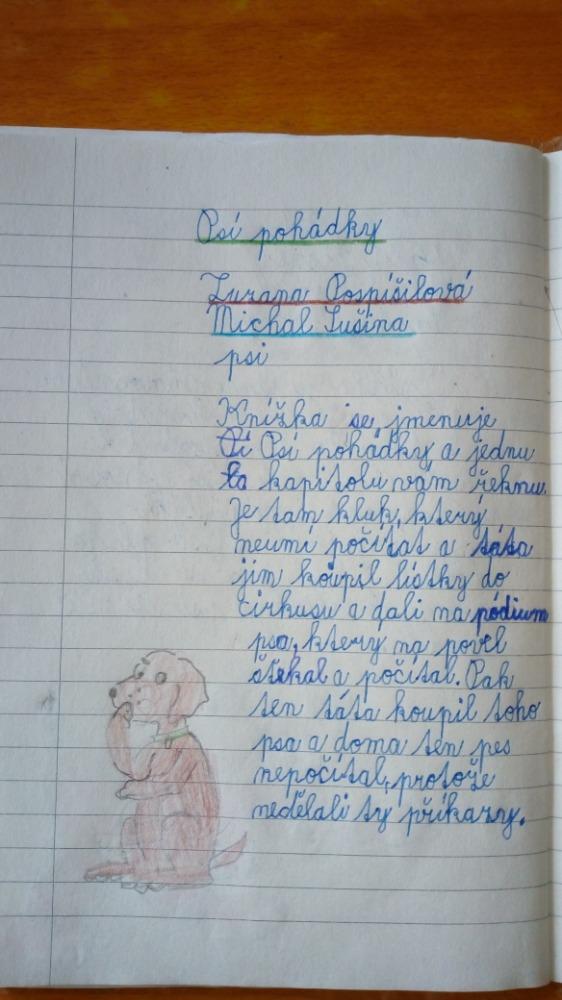 Psí pohádky
Zuzana Pospíšilová
Michal Sušina
psi
Knížka se jmenuje
Psí pohádky a jednu
kapitolu vám řeknu.
Je tam kluk, který
neumí počítat a táta
jim koupil lístky do
cirkusu a dali na pódium
psa, který na povel
štěkal a počítal. Pak
ten táta koupil toho
psa a doma ten pes
nepočítal, protože
nedělali ty příkazy.